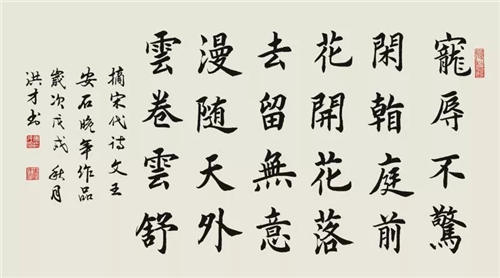 寵辱不驚
閑看庭前
花開花落
去留無意
漫随天外
雲卷雲舒
摘宋代诗文王
安石晚年作品
歲次戊戌秋月
洪才书